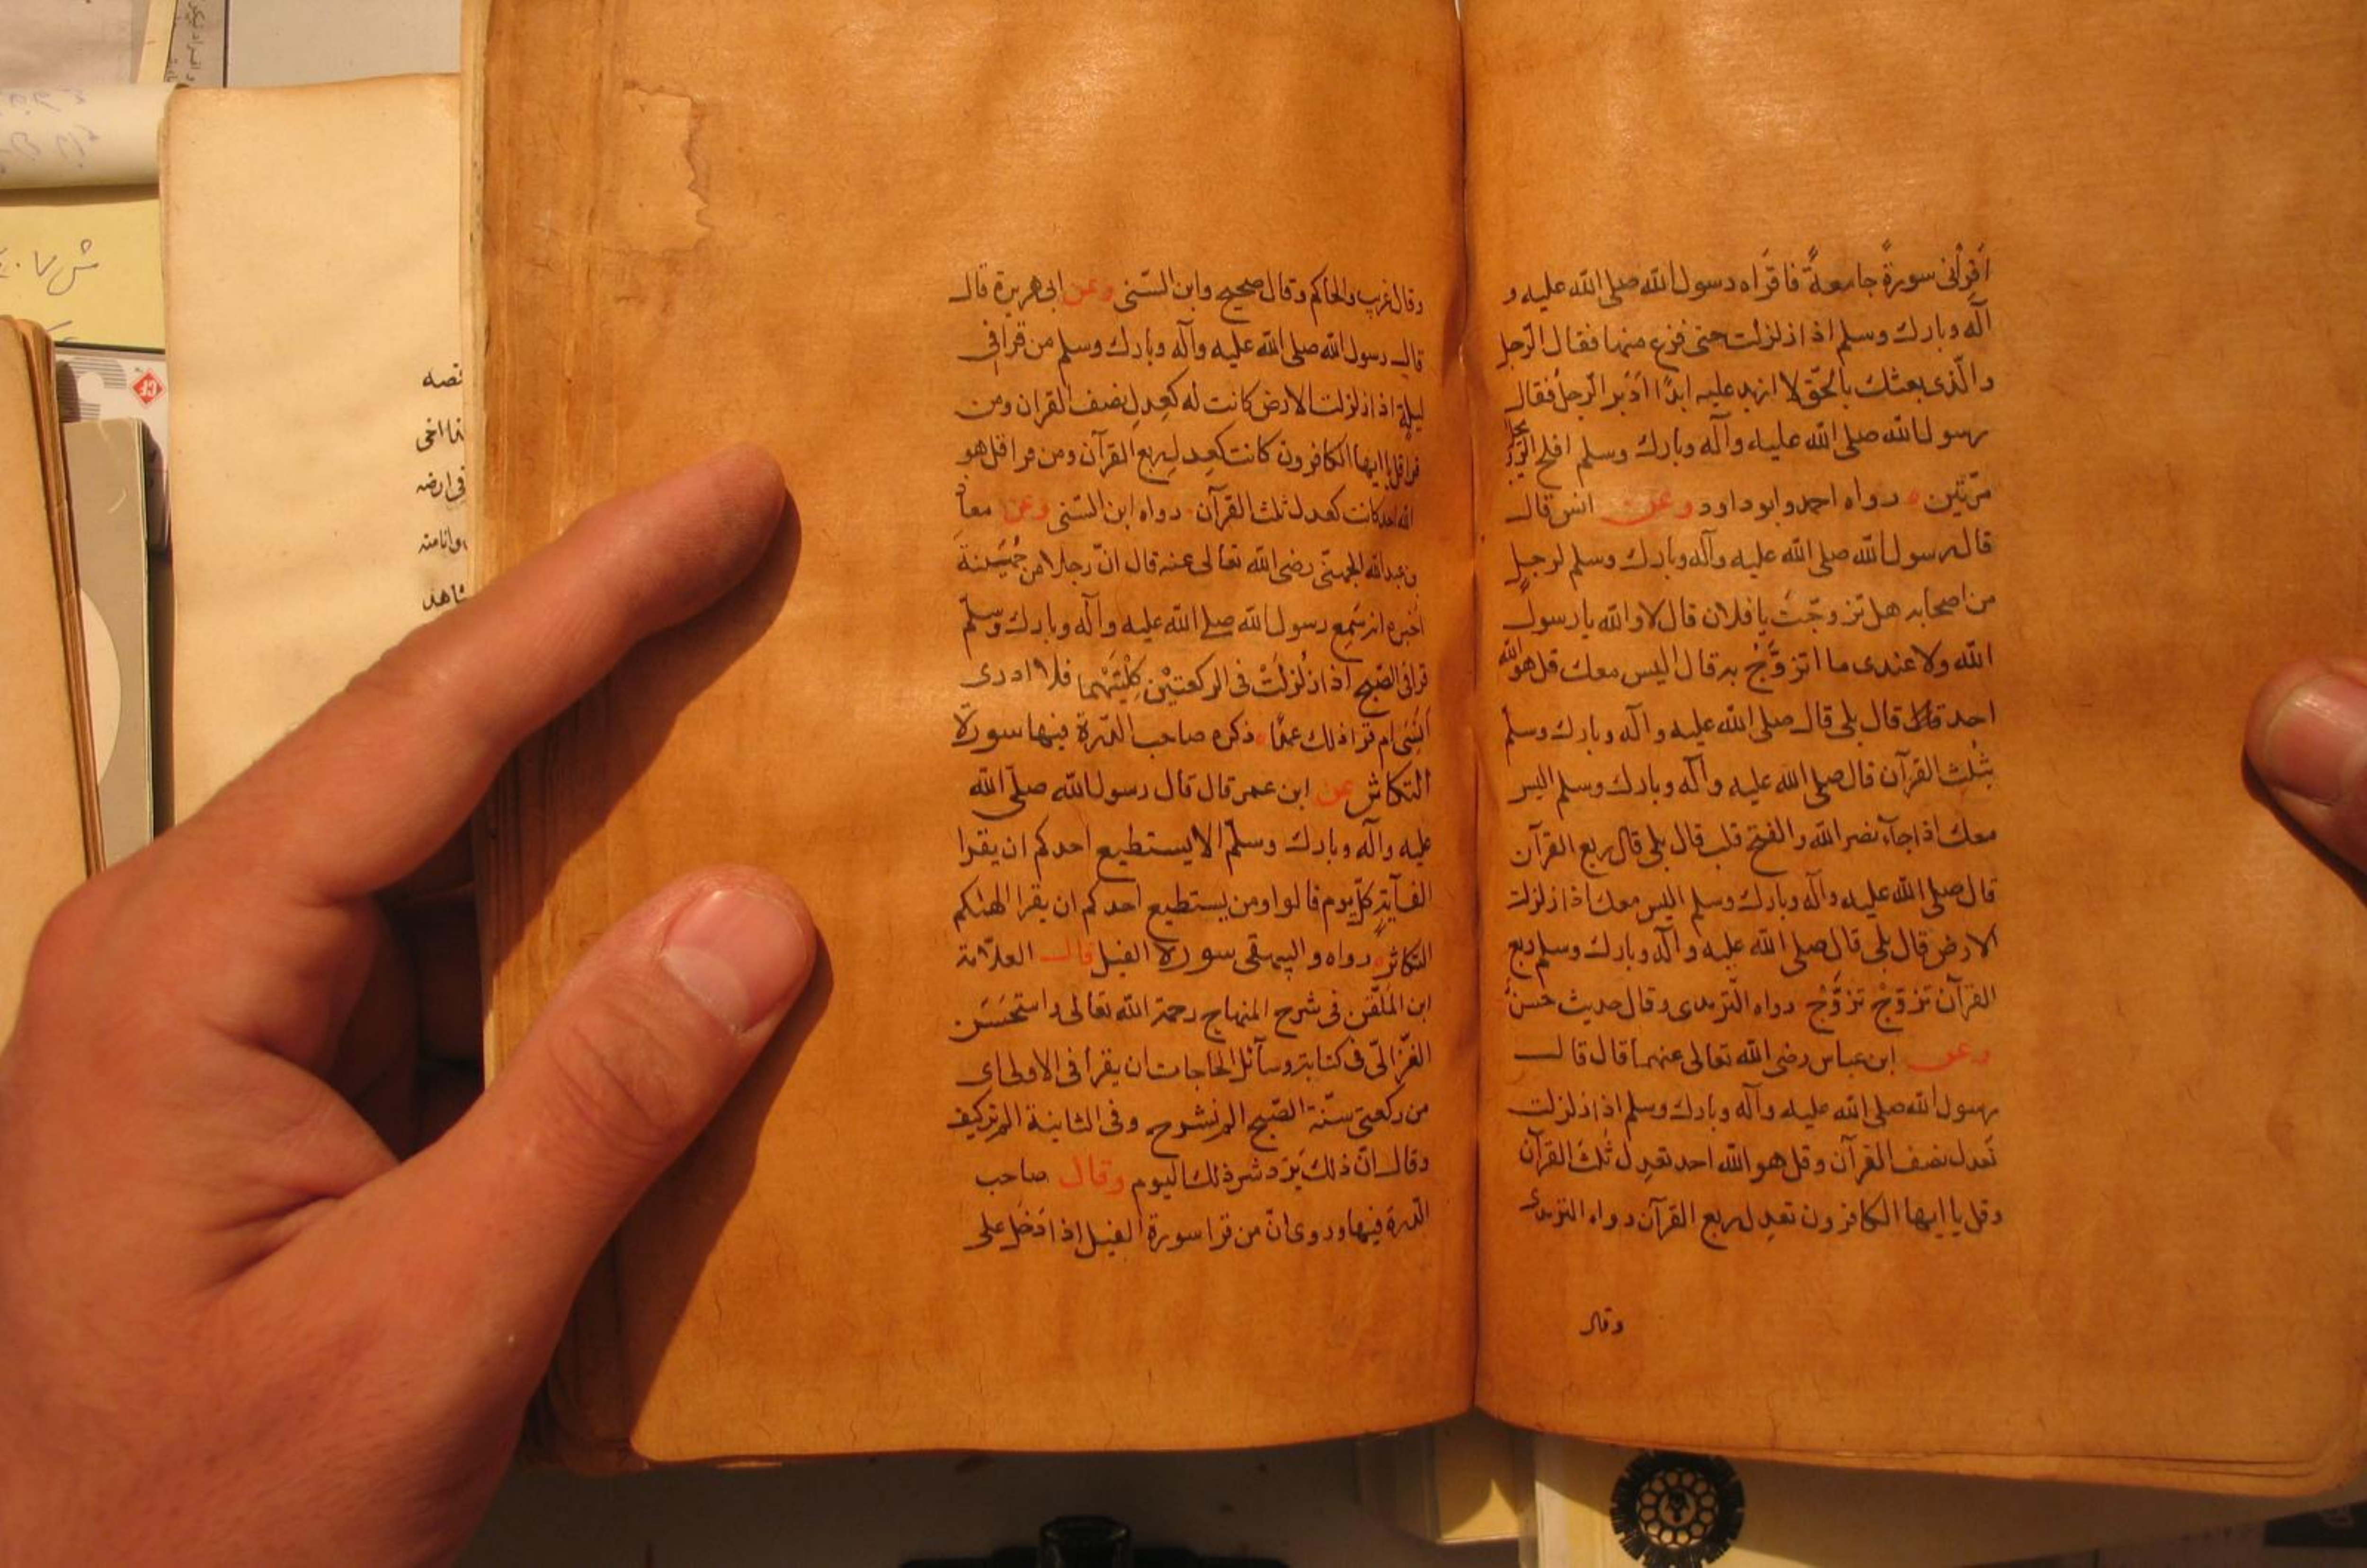 اَقرِأنى سورةً جامعةً فاقرَاه رسول الله صلى الله عليه و
آله وبارك وسلم اذا زلزلت حتى فرغ منها فقال الرّجل
والّذى بعثك بالحَقّ لا ازيد عليه ابدًا ادَبر الرّجلُ فقال
رسول الله صلى الله عليه وآله وبارك وسلم افلح الرّويجل
مرّتين ه رواه احمد وابو داود وعن انس قال
قال رسول الله صلى الله عليه وآله وبارك وسلم لرجلٍ
من اصحابه هل تزوجّتَ يا فلان قال لا والله يا رسول
الله ولا عندى ما اتزوَّجُ به قال اليس معك قل هو الله
احد قال بلى قال صلى الله عليه وآله وبارك وسلّم
ثلث القرآن قال صلى الله عليه وآله وبارك وسلم اليس
معك اذا جاء نصر الله والفتح قال بلى قال ربع القرآن
قال صلى الله عليه وآله وبارك وسلم اليس معك اذا زلزلت
الارض قال بلى قال صلى الله عليه وآله وبارك وسلم ربع
القرآن تزوّجْ تزوَّجْ رواه الترمدى وقال حديث حسنٌ
وعن ابن عباس رضى الله تعالى عنهما قال قال
رسول الله صلى الله عليه وآله وبارك وسلم اذا زلزلت
تَعدل نصف القرآن وقل هو الله احد تعدِل ثُلثَ القرآن
وقل يا ايها الكافرون تعدِل ربع القرآن رواه الترمدى
وقال
وقال غريب والحاكم وقال صحيح وابن السّنى وعن ابى هريرة قال
قال رسول الله صلى الله عليه وآله وبارك وسلم من قرا فى
ليلةٍ اذا زلزلت الارض كانت له كعِدلِ نصف القرآن ومن
قرا قل يا ايها الكافرون كانت كعِدلِ ربع القرآن ومن قرا قل هو
الله احد كانت كعدل ثلث القرآن رواه ابن السّنى وعن معاذ
بن عبد الله الجهنّى رضى الله تعالى عنه قال انّ رجلا من جُهَينة
اَخبره انه سَمِع رسول الله صلى الله عليه وآله وبارك وسلّم
قرا فى الصّبح اذا زُلزلَتْ فى الركعتيْن كِلْتَيْهما فلا ادرى
اَنَسِىَ ام قرا ذلك عمدًا ه ذكره صاحب الدّرة فيها سورة
التكاثر عن ابن عمر قال قال رسول الله صلّى الله
عليه وآله وبارك وسلّم الا يستطيع احدكم ان يقرا
الف آيةٍ كلّ يوم قالوا ومن يستطيع احدكم ان يقرا الهٰىكم
التكاثر ه رواه والبيهقى سورة الفيل قال العلّامة
ابن المُلَقّن فى شرح المنهاج رحمة الله تعالى واستحَسَن
الغزّالىّ فى كتابة وسآئل الحاجات ان يقرا فى الاولى اى
من ركعتى سنّة الصّبح الم نشرح وفى الثانية الم تركيف
وقال انّ ذلك يَردّ شر ذلك اليوم وقال صاحب
الدّرة فيها وروى انّ من قرا سورة الفيل اذا دَخَل على